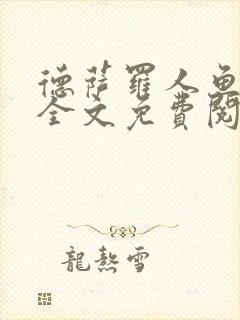 德薩羅人魚
全文免費閱
龍熬雪